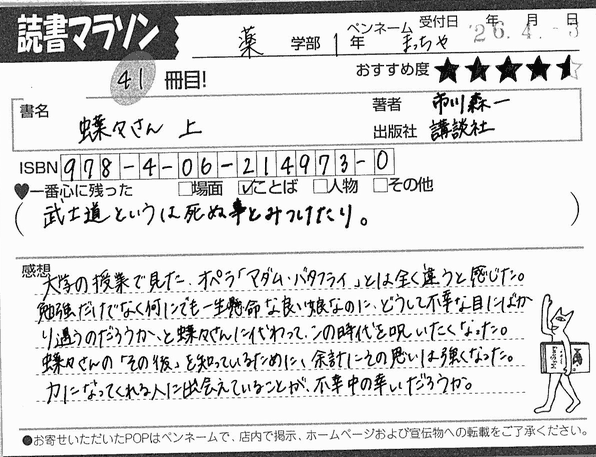 読書マラソン
受付日 年 月 日
'26.4.-3
薬 学部 1年 ペンネーム まっちゃ
41 冊目!
おすすめ度 ★★★★
書名 蝶々さん 上
著者 市川森一
出版社 講談社
ISBN 978-4-06-214973-0
♥一番心に残った □場面 ☑ことば □人物 □その他
(武士道というは死ぬ事とみつけたり。)
感想
大学の授業で見た、オペラ「マダム・バタフライ」とは全く違うと感じた。
勉強だけでなく何にでも一生懸命な良い娘なのに、どうして不幸な目にばか
り遇うのだろうか、と蝶々さんに代わって、この時代を呪いたくなった。
蝶々さんの「その後」を知っているために、余計にその思いは強くなった。
力になってくれる人に出会えていることが、不幸中の幸いだろうか。
●お寄せいただいたPOPはペンネームで、店内で掲示、ホームページおよび宣伝物への転載をご了承ください。